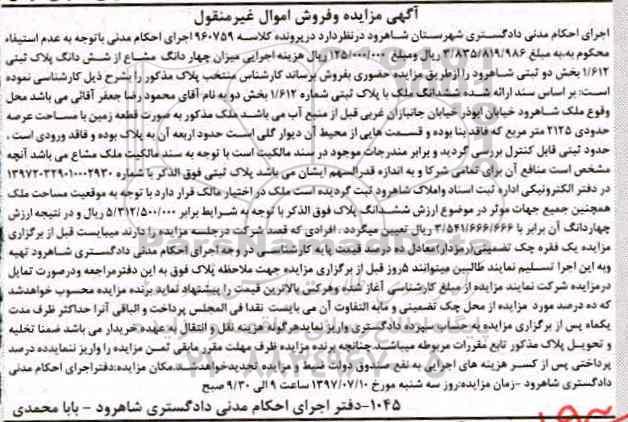 آگهی مزایده وفروش اموال غیرمنقول
اجرای احکام مدنی دادگستری شهرستان شاهرود درنظردارد درپرونده کلاسه ۹۶۰۷۵۹ اجرای احکام مدنی باتوجه به عدم استیفاء
محکوم به،به مبلغ ۳/۸۳۵/۸۱۹/۹۸۶ ریال ومبلغ ۱۲۵/۰۰۰/۰۰۰ ریال هزینه اجرایی میزان چهار دانگ مشاع از شش دانگ پلاک ثبتی
۱/۶۱۲ بخش دو ثبتی شاهرود را ازطریق مزایده حضوری بفروش برساند کارشناس منتخب پلاک مذکور را بشرح ذیل کارشناسی نموده
است: بر اساس سند ارائه شده ششدانگ ملک با پلاک ثبتی شماره ۱/۶۱۲ بخش دو به نام آقای محمود رضا جعفر آقائی می باشد محل
وقوع ملک شاهرود خیابان ابوذر خیابان جانبازان غربی قبل از منبع آب می باشد ملک مذکور به صورت قطعه زمین با مساحت عرصه
حدودی ۲۱۲۵ متر مربع که فاقد بنا بوده و قسمت هایی از محیط آن دیوار گلی است حدود اربعه آن به پلاک بوده و فاقد ورودی است .
حدود ثبتی قابل کنترل بررسی گردید و برابر مندرجات موجود در سند مالکیت است با توجه به سند مالکیت ملک مشاع می باشد آنچه
مشخص است منافع آن برای تمامی شرکا و به اندازه قدرالسهم ایشان می باشد پلاک ثبتی فوق الذکر با شماره ۱۳۹۷۲۰۳۲۹۰۱۰۰۰۲۹۳۰
در دفتر الکترونیکی اداره ثبت اسناد واملاک شاهرود ثبت گردیده است ملک در اختیار مالک قرار دارد با توجه به موقعیت مساحت ملک
همچنین جمیع جهات موثر در موضوع ارزش ششدانگ پلاک فوق الذکر با توجه به شرایط برابر ۵/۳۱۲/۵۰۰/۰۰۰ ریال و در نتیجه ارزش
چهاردانگ آن برابر با ۳/۵۴۱/۶۶۶/۶۶۶ ریال تعیین میگردد . افرادی که قصد شرکت درجلسه مزایده را دارند میبایست قبل از برگزاری
مزایده یک فقره چک تضمینی(رمزدار)معادل ده درصد قیمت پایه کارشناسی در وجه اجرای احکام مدنی دادگستری شاهرود تهیه
وبه این اجرا تسلیم نمایند طالبین میتوانند ۵روز قبل از برگزاری مزایده جهت ملاحظه پلاک فوق به این دفترمراجعه ودرصورت تمایل
درمزایده شرکت نمایند مزایده از مبلغ کارشناسی آغاز شده وهرکس بالاترین قیمت را پیشنهاد نماید برنده مزایده محسوب خواهدشد
که ده درصد مورد مزایده از محل چک تضمینی و مابه التفاوت آن می بایست نقدا فی المجلس پرداخت و الباقی آنرا حداکثر ظرف مدت
یکماه پس از برگزاری مزایده به حساب سپرده دادگستری واریز نمایدهرگونه هزینه نقل و انتقال به عهده خریدار می باشد ضمنا تخلیه
و تحویل پلاک مذکور تابع مقررات مربوطه میباشد.چنانچه برنده مزایده ظرف مهلت مقرر مابقی ثمن مزایده را واریز ننماید،ده درصد
پرداختی پس از کسر هزینه های اجرایی به نفع صندوق دولت ضبط و مزایده تجدیدخواهدشد.مکان مزایده:دفتراجرای احکام مدنی
دادگستری شاهرود -زمان مزایده:روز سه شنبه مورخ ۱۳۹۷/۰۷/۱۰ ساعت ۹ الی ۹/۳۰ صبح
۱۰۴۵-دفتر اجرای احکام مدنی دادگستری شاهرود - بابا محمدی